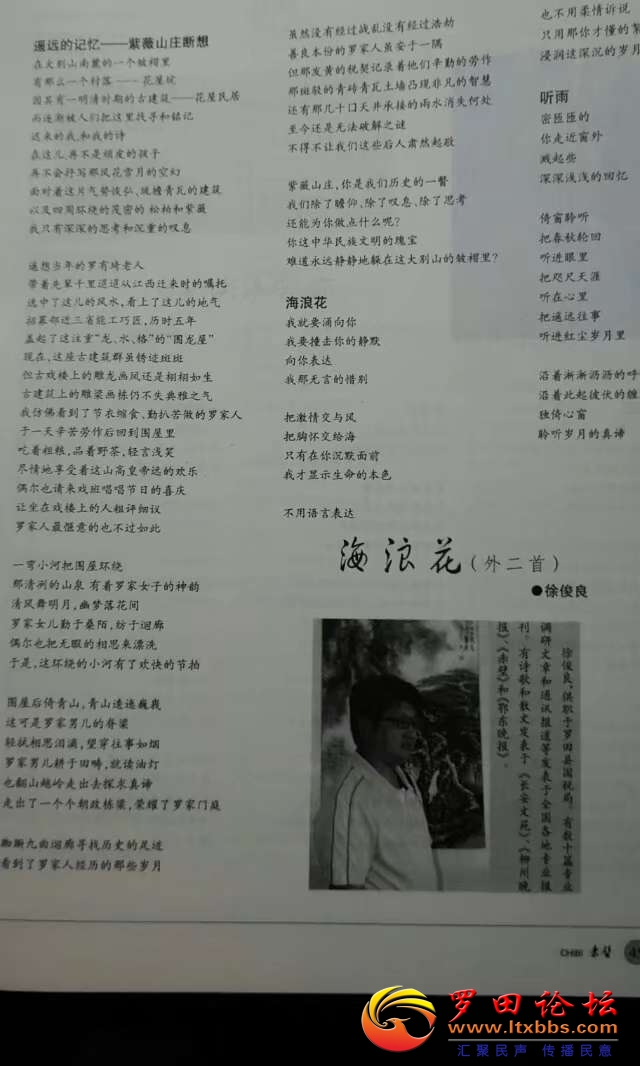 遥远的记忆——紫薇山庄断想
在大别山南麓的一个皱褶里
有那么一个村落——花屋垸
因其有一明清时期的古建筑——花屋民居
而逐渐被人们把这里找寻和铭记
迟来的我,和我的诗
在这儿,再不是顽皮的孩子
再不会抒写那风花雪月的空幻
面对着这片气势恢弘、琉檐青瓦的建筑
以及四周环绕的茂密的松柏和紫薇
我只有深深的思考和沉重的叹息
遥想当年的罗有琦老人
带着先辈千里迢迢从江西迁来时的嘱托
选中了这儿的风水,看上了这儿的地气
招募邻近三省能工巧匠,历时五年
盖起了这注重“龙、水、格”的“围龙屋”
现在,这座古建筑群虽锈迹斑斑
但古戏楼上的雕龙画凤还是栩栩如生
古建筑上的雕梁画栋仍不失典雅之气
我仿佛看到了节衣缩食、勤扒苦做的罗家人
于一天辛苦劳作后回到围屋里
吃着粗粮,品着野茶,轻言浅笑
尽情地享受着这山高皇帝远的欢乐
偶尔也请来戏班唱唱节日的喜庆
让坐在戏楼上的人粗评细议
罗家人最惬意的也不过如此
一弯小河把围屋环绕
那清冽的山泉 有着罗家女子的神韵
清风舞明月,幽梦落花间
罗家女儿勤于桑陌,纺于迴廊
偶尔也把无暇的相思来漂洗
于是,这环绕的小河有了欢快的节拍
围屋后倚青山,青山逶迤巍峩
这可是罗家男儿的脊梁
轻拭相思泪滴,望穿往事如烟
罗家男儿耕于田畴,就读油灯
也翻山越岭走出去探求真谛
走出了一个个朝政栋梁,荣耀了罗家门庭
踟蹰九曲迴廊寻找历史的足迹
看到了罗家人经历的那些岁月
虽然没有经过战乱没有经过浩劫
善良本份的罗家人虽安于一隅
但那发黄的税契记录着他们辛勤的劳作
那斑驳的青砖青瓦土墙凸现非凡的智慧
还有那几十口天井承接的雨水消失何处
至今还是无法破解之谜
不得不让我们这些后人肃然起敬
紫薇山庄,你是我们历史的一瞥
我们除了瞻仰、除了叹息、除了思考
还能为你做点什么呢?
你这中华民族文明的瑰宝
难道永远静静地躲在这大别山的皱褶里?
海浪花
我就要涌向你
我要撞击你的静默
向你表达
我那无言的惜别
把激情交与风
把胸怀交给海
只有在你沉默面前
我才显示生命的本色
不用语言表达
也不用柔情诉说
只用那你才懂的絮
浸润这深沉的岁月
听雨
密匝匝的
你走近窗外
溅起些
深深浅浅的回忆
倚窗聆听
把春秋轮回
听进眼里
把咫尺天涯
听在心里
把遥远往事
听进红尘岁月里
沿着淅淅沥沥的呼
沿着此起彼伏的缠
独倚心窗
聆听岁月的真谛
海浪花(外二首)
●徐俊良
徐俊良,供职于罗田县国税局。有数十篇专业
调研文章和通讯报道等发表于全国各地专业报
刊。有诗歌和散文发表于《长安文苑》、《柳州晚
报》、《赤壁》和《鄂东晚报》。
CHIBI 赤壁
罗田论坛
www.ltxbbs.com
汇聚民声 传播民意